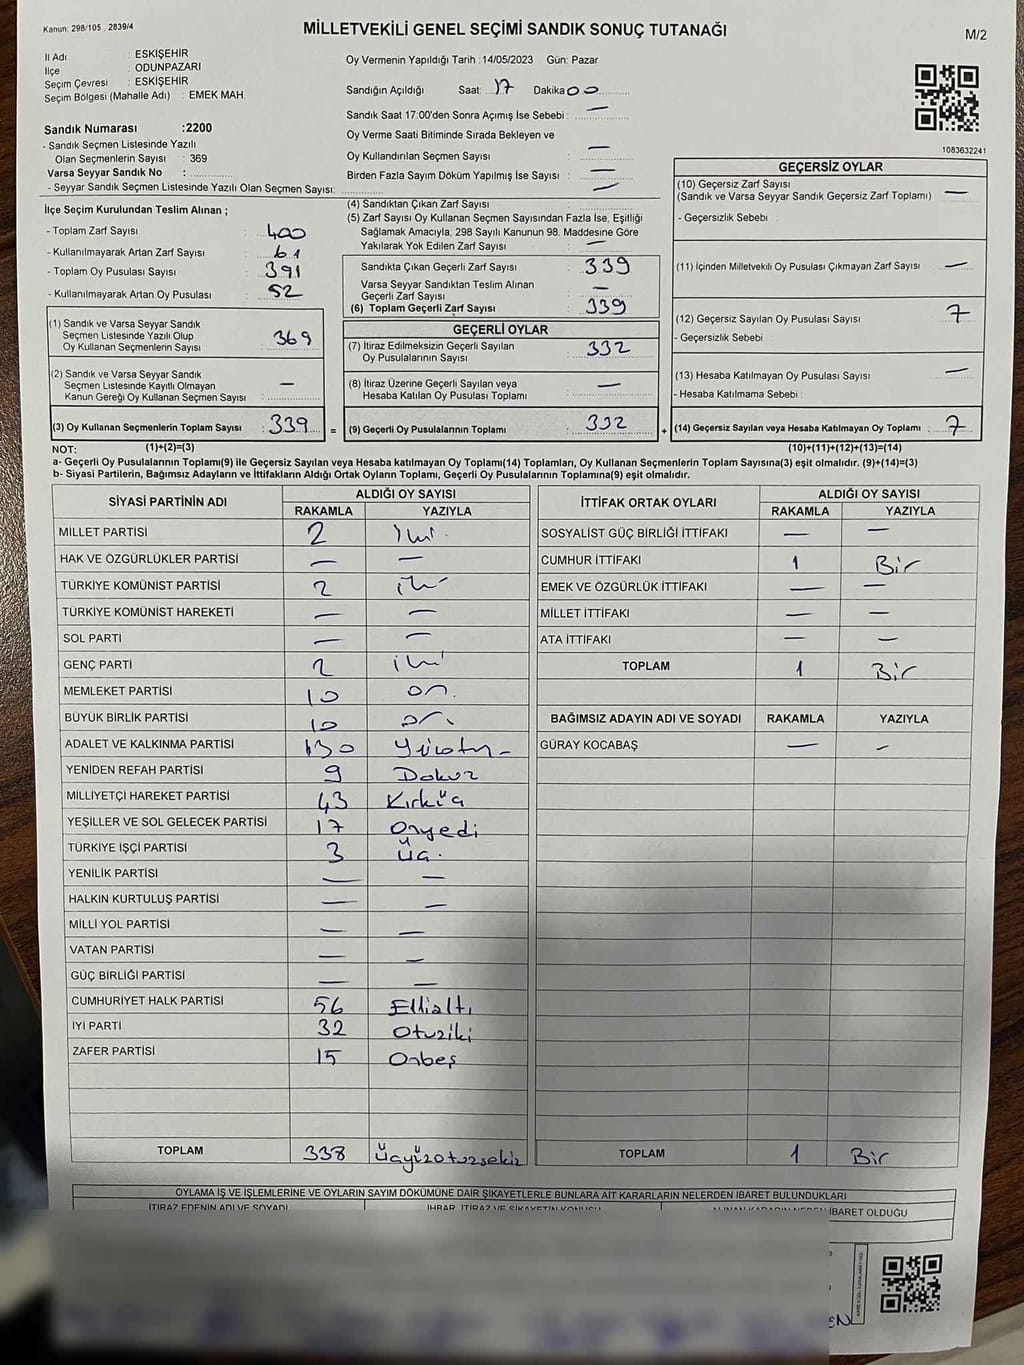 Kanun: 298/105 2839/4
MİLLETVEKİLİ GENEL SEÇİMİ SANDIK SONUÇ TUTANAĞI
M/2
İl Adı : ESKİŞEHİR
İlçe : ODUNPAZARI
Seçim Çevresi : ESKİŞEHİR
Seçim Bölgesi (Mahalle Adı) : EMEK MAH.
Sandık Numarası :2200
- Sandık Seçmen Listesinde Yazılı
Olan Seçmenlerin Sayısı : 369
Varsa Seyyar Sandık No :
- Seyyar Sandık Seçmen Listesinde Yazılı Olan Seçmen Sayısı:
Oy Vermenin Yapıldığı Tarih : 14/05/2023 Gün: Pazar
Sandığın Açıldığı Saat: 17 Dakika 00
Sandık Saat 17:00'den Sonra Açımış İse Sebebi : —
Oy Verme Saati Bitiminde Sırada Bekleyen ve
Oy Kullandırılan Seçmen Sayısı : —
Birden Fazla Sayım Döküm Yapılmış İse Sayısı : —
1083632241
İlçe Seçim Kurulundan Teslim Alınan ;
- Toplam Zarf Sayısı : 400
- Kullanılmayarak Artan Zarf Sayısı : 61
- Toplam Oy Pusulası Sayısı : 391
- Kullanılmayarak Artan Oy Pusulası : 52
(1) Sandık ve Varsa Seyyar Sandık
Seçmen Listesinde Yazılı Olup
Oy Kullanan Seçmenlerin Sayısı : 369
(2) Sandık ve Varsa Seyyar Sandık
Seçmen Listesinde Kayıtlı Olmayan
Kanun Gereği Oy Kullanan Seçmen Sayısı : —
(3) Oy Kullanan Seçmenlerin Toplam Sayısı : 339 =
(4) Sandıktan Çıkan Zarf Sayısı : —
(5) Zarf Sayısı Oy Kullanan Seçmen Sayısından Fazla İse, Eşitliği
Sağlamak Amacıyla; 298 Sayılı Kanunun 98. Maddesine Göre
Yakılarak Yok Edilen Zarf Sayısı : —
Sandıkta Çıkan Geçerli Zarf Sayısı : 339
Varsa Seyyar Sandıktan Teslim Alınan
Geçerli Zarf Sayısı : —
(6) Toplam Geçerli Zarf Sayısı : 339
GEÇERLİ OYLAR
(7) İtiraz Edilmeksizin Geçerli Sayılan
Oy Pusulalarının Sayısı : 332
(8) İtiraz Üzerine Geçerli Sayılan veya
Hesaba Katılan Oy Pusulaları Toplamı : —
(9) Geçerli Oy Pusulalarının Toplamı : 332 +
GEÇERSİZ OYLAR
(10) Geçersiz Zarf Sayısı
(Sandık ve Varsa Seyyar Sandık Geçersiz Zarf Toplamı) : —
- Geçersizlik Sebebi :
(11) İçinden Milletvekili Oy Pusulası Çıkmayan Zarf Sayısı : —
(12) Geçersiz Sayılan Oy Pusulası Sayısı : 7
- Geçersizlik Sebebi :
(13) Hesaba Katılmayan Oy Pusulası Sayısı : —
- Hesaba Katılmama Sebebi :
(14) Geçersiz Sayılan veya Hesaba Katılmayan Oy Toplamı : 7
NOT: (1)+(2)=(3) (10)+(11)+(12)+(13)=(14)
a- Geçerli Oy Pusulalarının Toplamı(9) ile Geçersiz Sayılan veya Hesaba katılmayan Oy Toplamı(14) Toplamları, Oy Kullanan Seçmenlerin Toplam Sayısına(3) eşit olmalıdır. (9)+(14)=(3)
b- Siyasi Partilerin, Bağımsız Adayların ve İttifakların Aldığı Ortak Oyların Toplamı, Geçerli Oy Pusulalarının Toplamına(9) eşit olmalıdır.
SİYASİ PARTİNİN ADI ALDIĞI OY SAYISI
RAKAMLA YAZIYLA
MİLLET PARTİSİ 2 iki
HAK VE ÖZGÜRLÜKLER PARTİSİ — —
TÜRKİYE KOMÜNİST PARTİSİ 2 iki
TÜRKİYE KOMÜNİST HAREKETİ — —
SOL PARTİ — —
GENÇ PARTİ 2 iki
MEMLEKET PARTİSİ 10 on.
BÜYÜK BİRLİK PARTİSİ 10 on.
ADALET VE KALKINMA PARTİSİ 130
YENİDEN REFAH PARTİSİ 9 Dokuz
MİLLİYETÇİ HAREKET PARTİSİ 43 Kırküç
YEŞİLLER VE SOL GELECEK PARTİSİ 17 Onyedi
TÜRKİYE İŞÇİ PARTİSİ 3 Üç.
YENİLİK PARTİSİ — —
HALKIN KURTULUŞ PARTİSİ — —
MİLLİ YOL PARTİSİ — —
VATAN PARTİSİ — —
GÜÇ BİRLİĞİ PARTİSİ — —
CUMHURİYET HALK PARTİSİ 56 Ellialtı
İYİ PARTİ 32 Otuziki
ZAFER PARTİSİ 15 Onbeş
TOPLAM 338 Üçyüzotuzsekiz
İTTİFAK ORTAK OYLARI ALDIĞI OY SAYISI
RAKAMLA YAZIYLA
SOSYALİST GÜÇ BİRLİĞİ İTTİFAKI — —
CUMHUR İTTİFAKI 1 Bir
EMEK VE ÖZGÜRLÜK İTTİFAKI — —
MİLLET İTTİFAKI — —
ATA İTTİFAKI — —
TOPLAM 1 Bir
BAĞIMSIZ ADAYIN ADI VE SOYADI RAKAMLA YAZIYLA
GÜRAY KOCABAŞ — —
TOPLAM 1 Bir
OYLAMA İŞ VE İŞLEMLERİNE VE OYLARIN SAYIM DÖKÜMÜNE DAİR ŞİKAYETLERLE BUNLARA AİT KARARLARIN NELERDEN İBARET BULUNDUKLARI
İTİRAZ EDENİN ADI VE SOYADI İHBAR, İTİRAZ VE ŞİKAYETİN KONUSU İBARET OLDUĞU